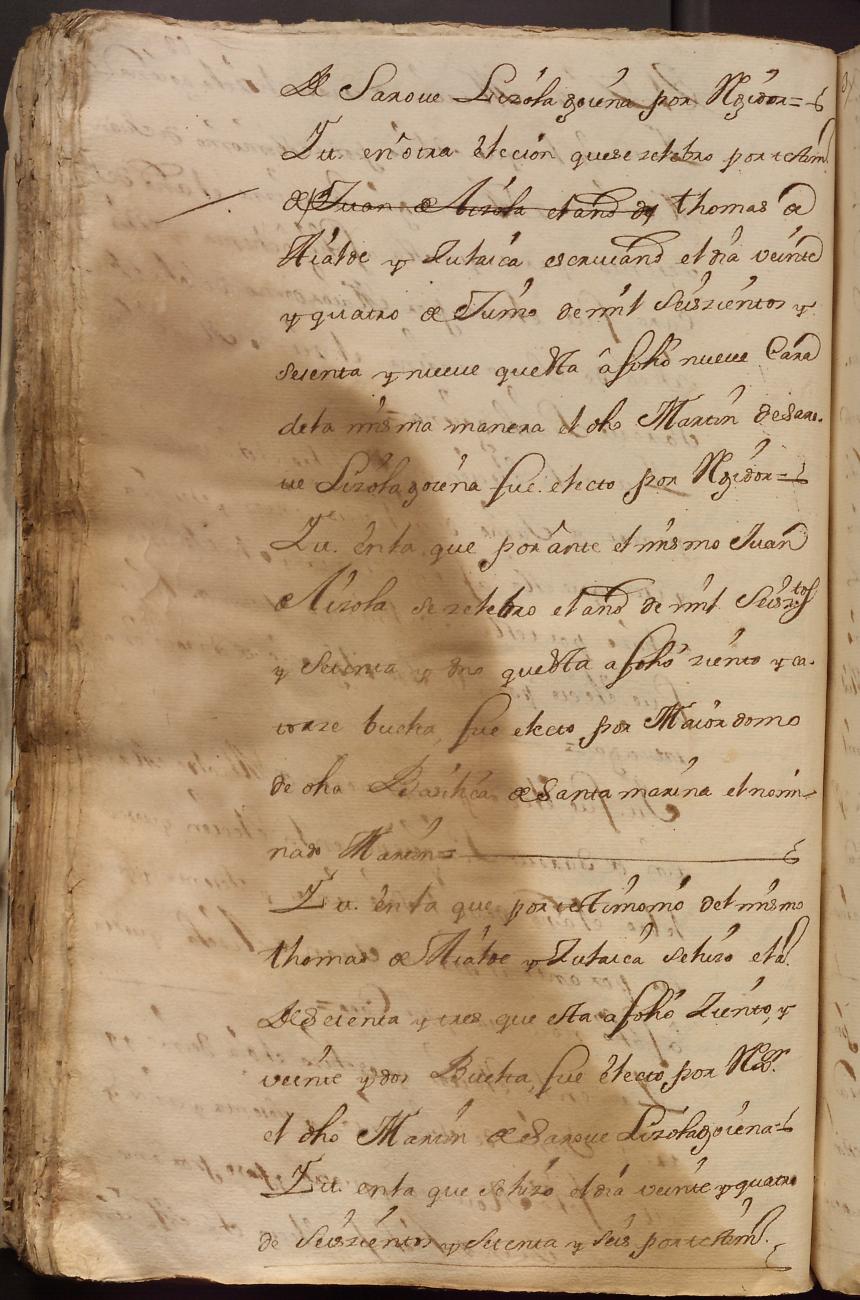 de Sarove Lizola goiena por Rexidor=
Itt. en otra eleción que se zelebro por testim.
de Juan de Lizola el año de thomas de
Aialde y Zulaica escriuano el dia veinte
y quatro de Junio de mil Seiszientos y
setenta y nueue que Está a folio nueue Cara
de la misma manera el dho Martin de Saro-
ue Lizola goiena fue electo por Rexidor=
Itt. en la que por ante el mismo Juan
de Lizola se zelebro el año de mil Seisztos
y Setenta y dno que Está a folio ziento y ca-
torze buelta, fue electo por Maiordomo
de dha Basílica de Santa marina el nomi-
nado Martin=
Itt. en la que por testimonio del mismo
thomas de Aialde y Zulaica se hizo el a.
de Setenta y tres que esta a folio Ziento, y
veinte y dos Buelta, fue electo por Rror.
el dho Martin de Sarove Lizola goiena=
Itt. en la que se hizo el dia veinte y quatro
de Seiszientos y Setenta y seis por testim.